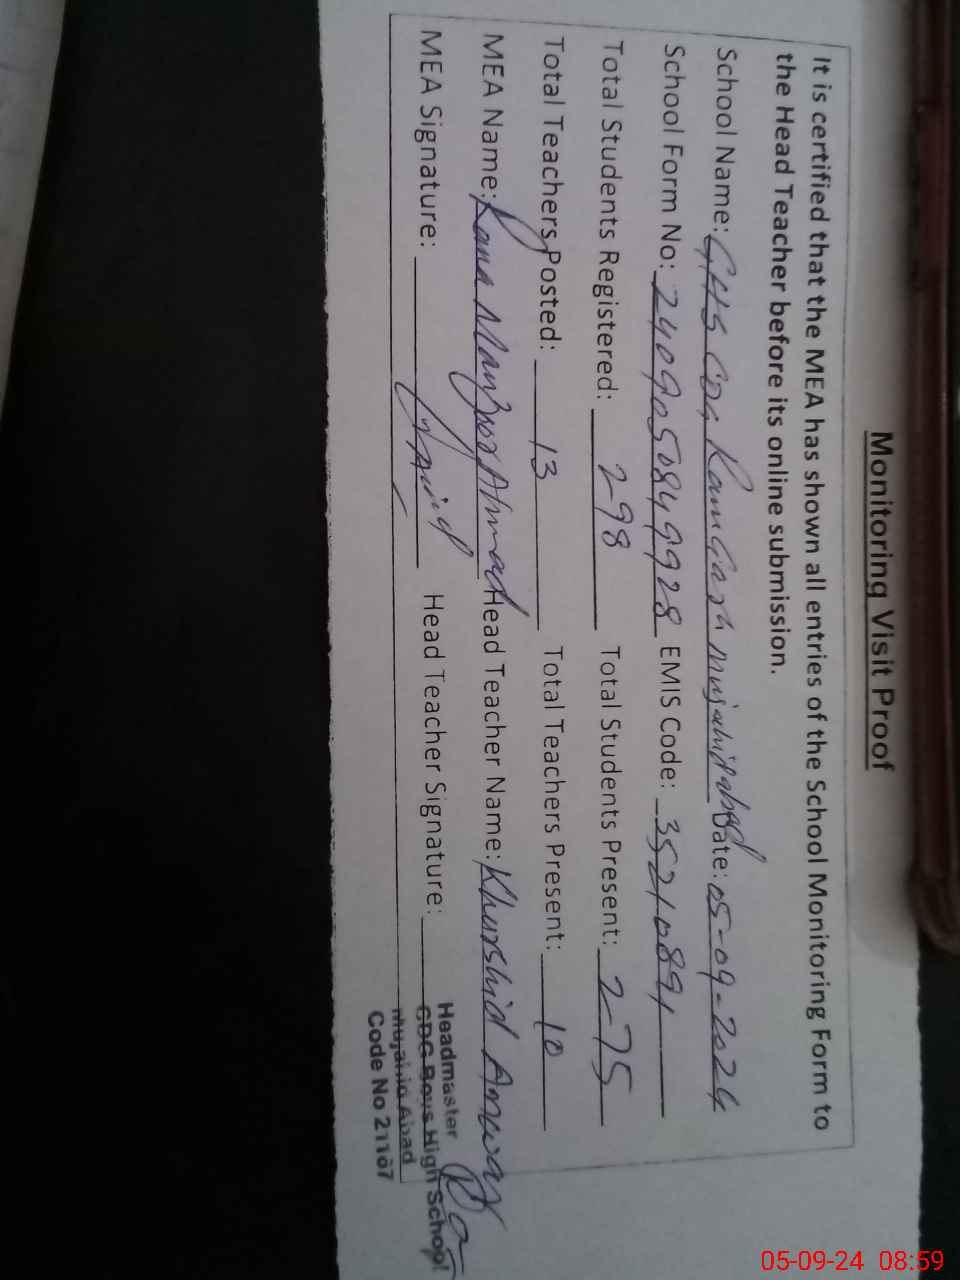 Monitoring Visit Proof
It is certified that the MEA has shown all entries of the School Monitoring Form to
the Head Teacher before its online submission.
School Name: GHS CDG Ramgarh mujahidabad Date: 05-09-2024
School Form No: 240905084 9928 EMIS Code: 35210891
Total Students Registered: 298 Total Students Present: 275
Total Teachers Posted: 13 Total Teachers Present: 10
MEA Name: Rana Ahmad Head Teacher Name: Khurshid Anwar
MEA Signature: Head Teacher Signature:
Headmaster
CDG Boys High School
Abad
Code No 21107
05-09-24 08:59